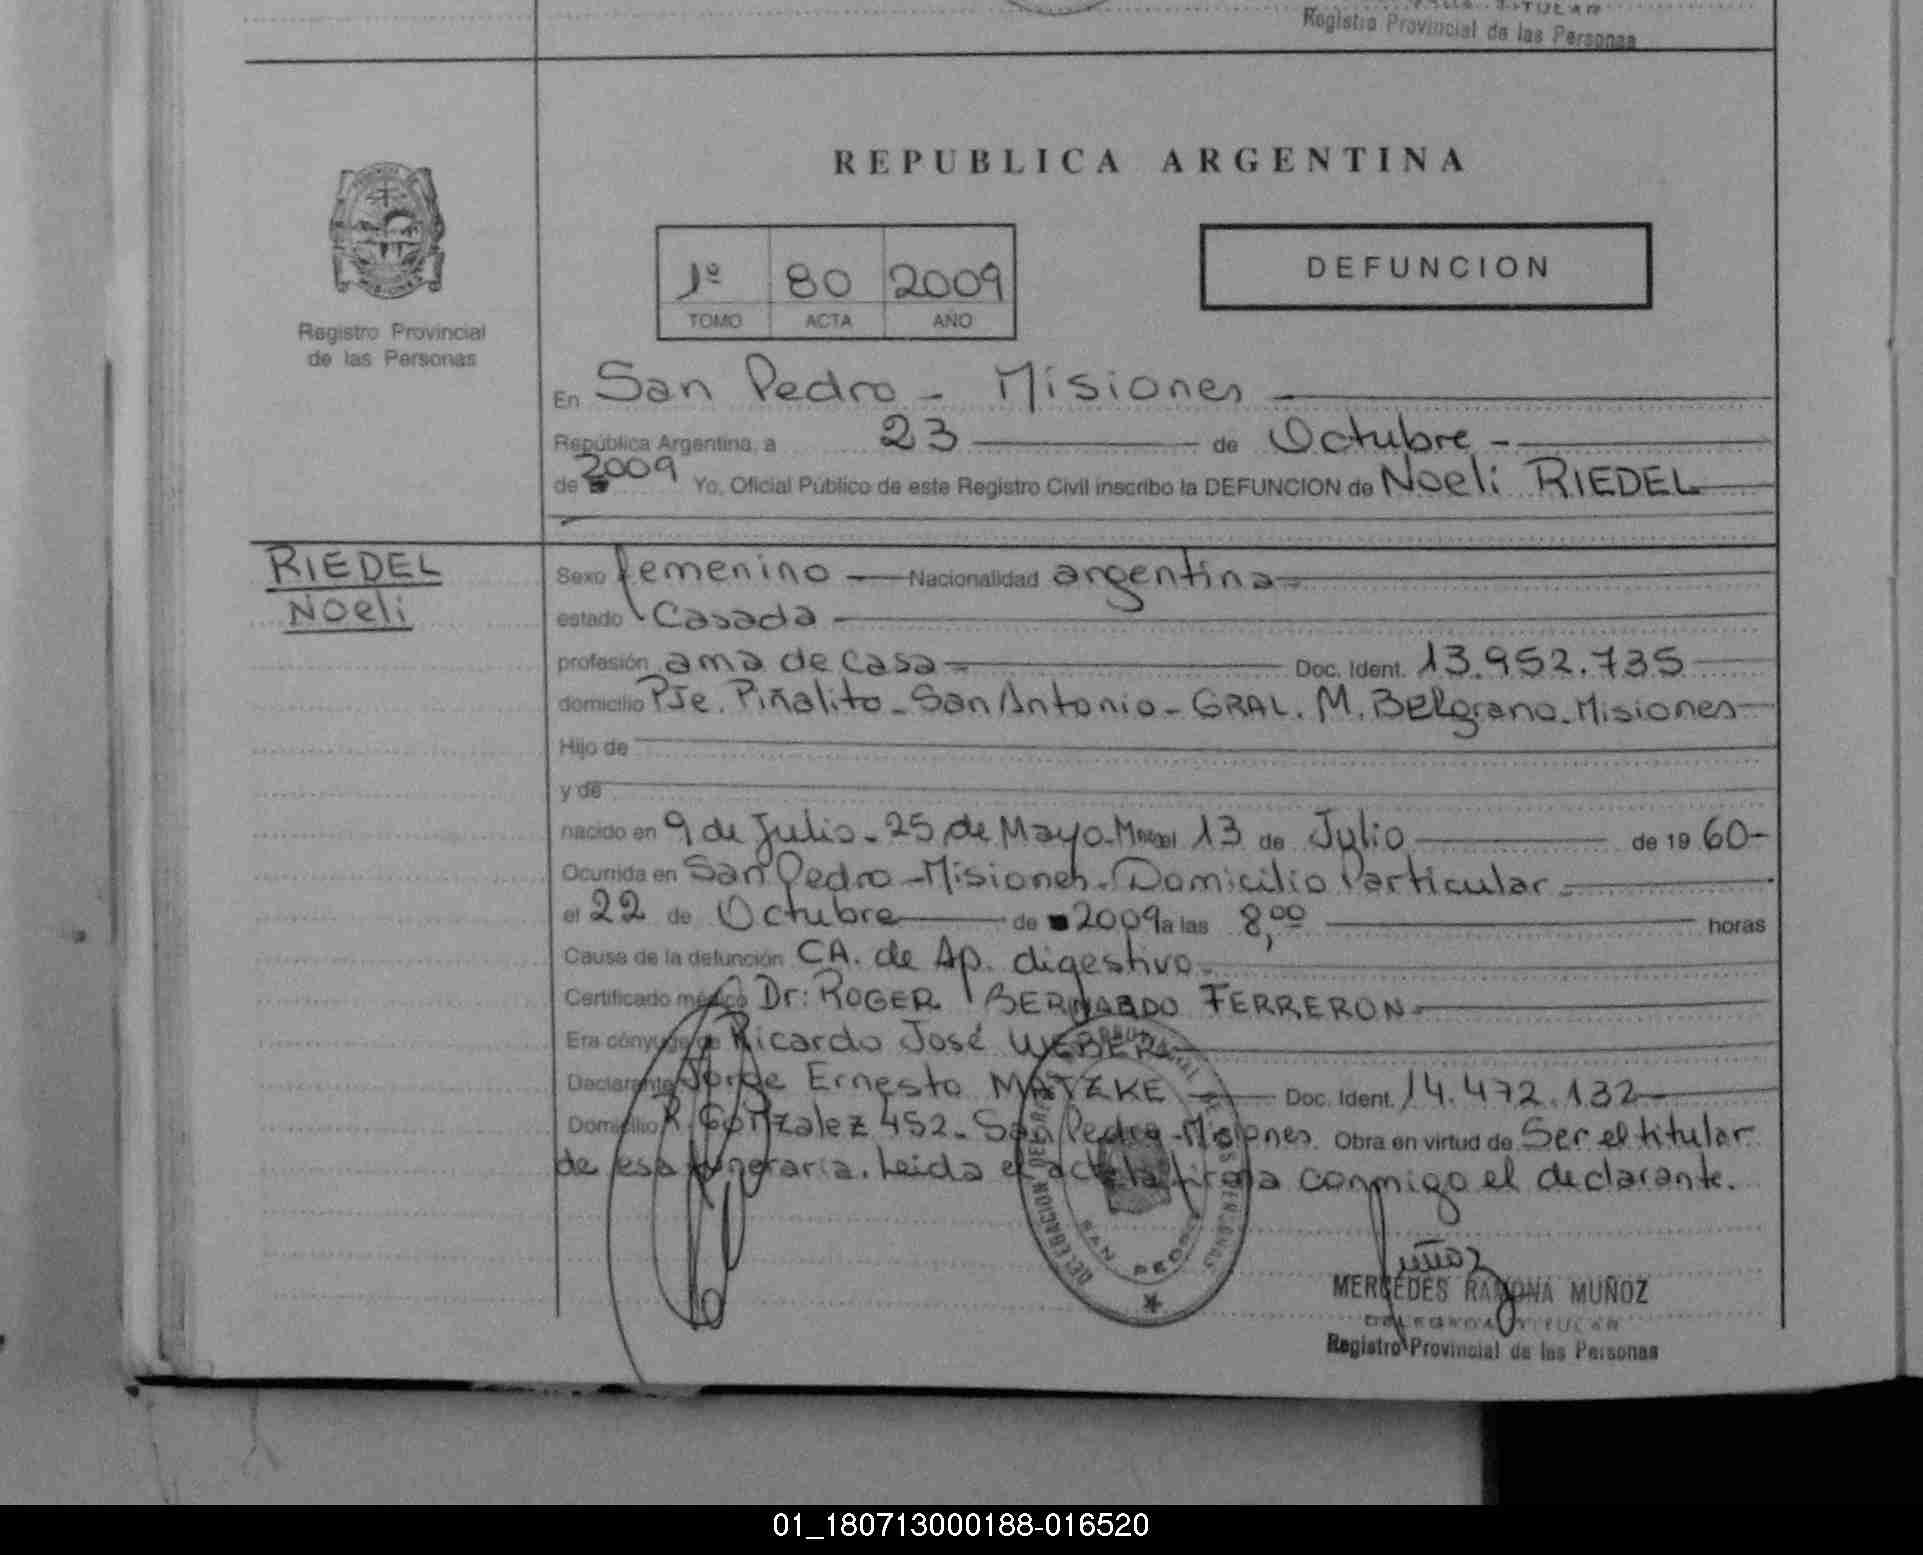 Registro Provincial de las Personas
REPUBLICA ARGENTINA
1º 80 2009
TOMO ACTA AÑO
DEFUNCION
Registro Provincial
de las Personas
En San Pedro - Misiones
República Argentina, a 23 de Octubre -
de 2009 Yo, Oficial Público de este Registro Civil inscribo la DEFUNCION de Noeli RIEDEL
RIEDEL
Noeli
Sexo femenino Nacionalidad argentina
estado Casada
profesión ama de casa Doc. Ident. 13.952.735
domicilio Pje. Piñalito - San Antonio - GRAL. M. Belgrano. Misiones
Hijo de
y de
nacido en 9 de Julio - 25 de Mayo - 13 de Julio de 19 60-
Ocurrida en San Pedro - Misiones. Domicilio Particular
el 22 de Octubre de 2009 a las 8,00 horas
Causa de la defunción CA. de Ap. digestivo
Certificado médico Dr: ROGER BERNARDO FERRERON
Era cónyuge de Ricardo José WEBER
Declarante Jorge Ernesto MATZKE Doc. Ident. 14.472.132
Domicilio R. Gonzalez 452 - San Pedro - Misiones. Obra en virtud de Ser el titular
de esa funeraria. Leida el acta la firma conmigo el declarante.
DELEGACION SAN PEDRO
Muñoz
MERCEDES RAMONA MUÑOZ
DELEGADA TITULAR
Registro Provincial de las Personas
01_180713000188-016520